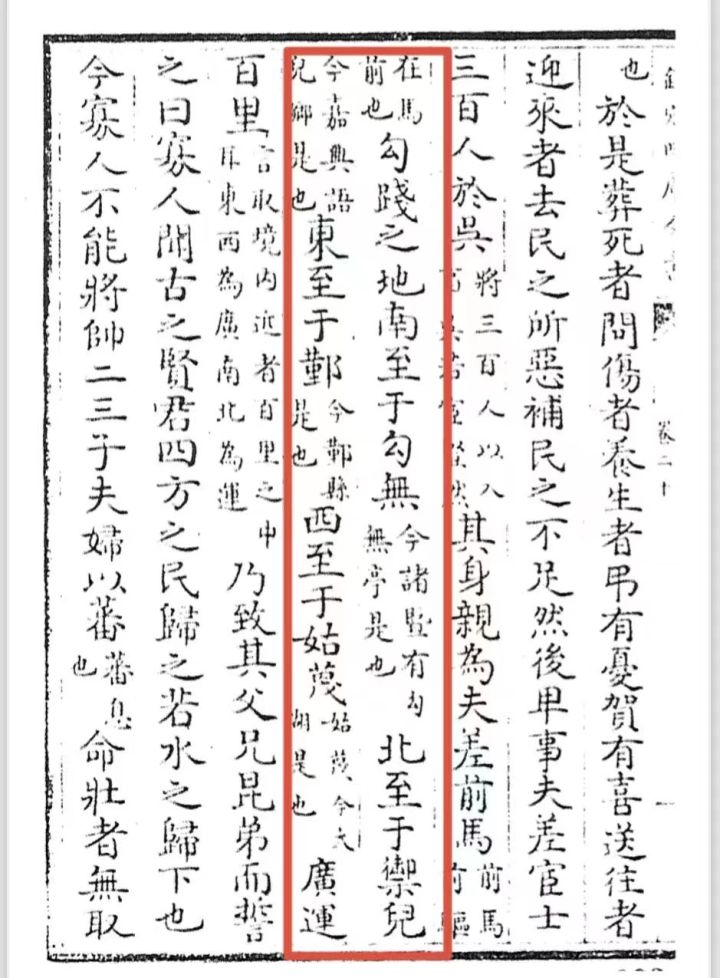 卷二十
也於是葬死者問傷者養生者弔有憂賀有喜送往者
迎來者去民之所惡補民之不足然後卑事夫差宦士
三百人於吳將三百人以入吳若宦豎然其身親為夫差前馬前馬前驅
在馬前也勾踐之地南至于勾無今諸暨有勾無亭是也北至于禦兒
今嘉興語兒鄉是也東至于鄞今鄞縣是也西至于姑蔑姑蔑今太湖是也廣運
百里言取境内近者百里之中耳東西為廣南北為運乃致其父兄昆弟而誓
之曰寡人聞古之賢君四方之民歸之若水之歸下也
今寡人不能將帥二三子夫婦以蕃蕃息也命壯者無取